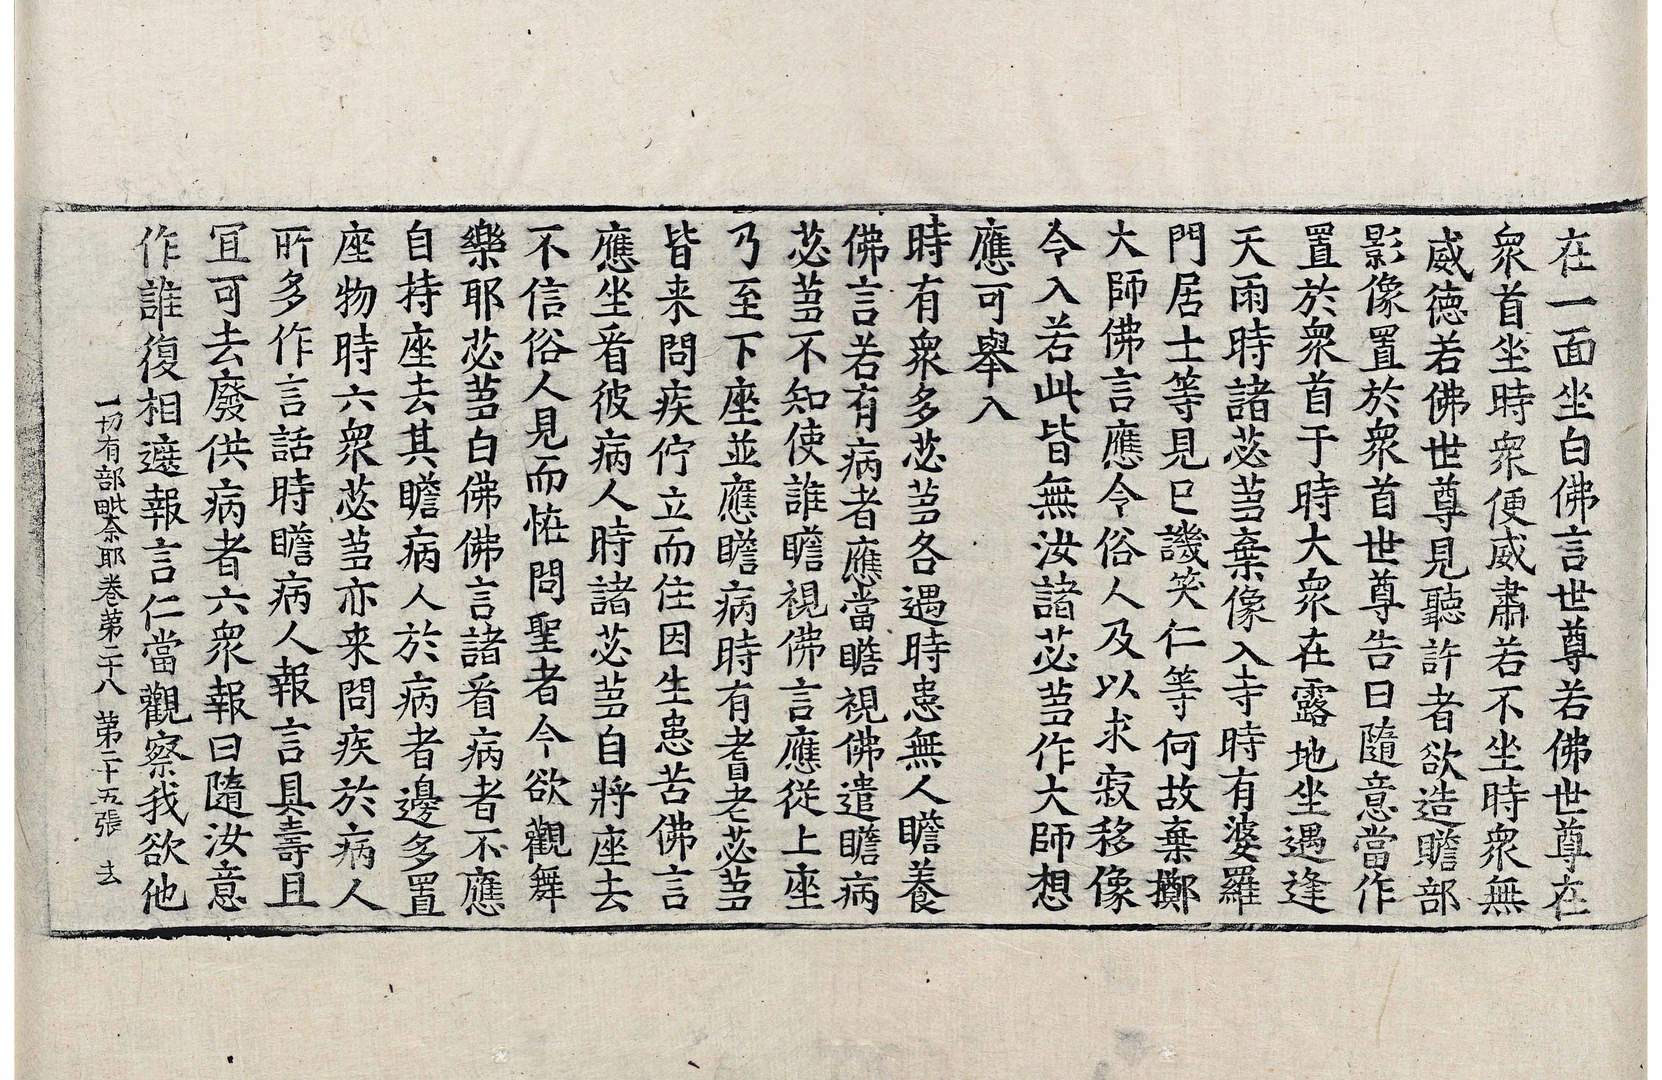 在一面坐白佛言世尊若佛世尊在
衆首坐時衆便威肅若不坐時衆無
威德若佛世尊見聽許者欲造贍部
影像置於衆首世尊告曰隨意當作
置於衆首于時大衆在露地坐遇逢
天雨時諸苾芻棄像入寺時有婆羅
門居士等見已譏笑仁等何故棄擲
大師佛言應令俗人及以求寂移像
令入若此皆無汝諸苾芻作大師想
應可舉入
時有衆多苾芻各遇時患無人瞻養
佛言若有病者應當瞻視佛遣瞻病
苾芻不知使誰瞻視佛言應從上座
乃至下座並應瞻病時有耆老苾芻
皆来問疾佇立而住因生患苦佛言
應坐看彼病人時諸苾芻自將座去
不信俗人見而恠問聖者今欲觀舞
樂耶苾芻白佛佛言諸看病者不應
自持座去其瞻病人於病者邊多置
座物時六衆苾芻亦来問疾於病人
所多作言話時瞻病人報言具壽且
冝可去廢供病者六衆報曰隨汝意
作誰復相遮報言仁當觀察我欲他
一切有部毗奈耶卷第二十八 第二十五張 去